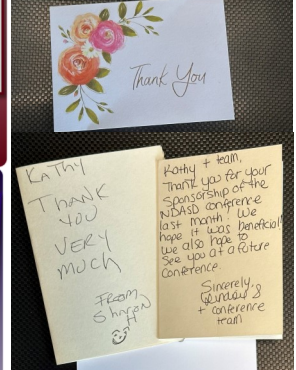 Thank You
KATHY
THANK
YOU
VERY
MUCH
FROM
SHARON
H
Kathy + team,
Thank you for your
sponsorship of the
NDASD conference
last month! We
hope it was beneficial
we also hope to
see you at a future
conference.
Sincerely,
+ conference
team